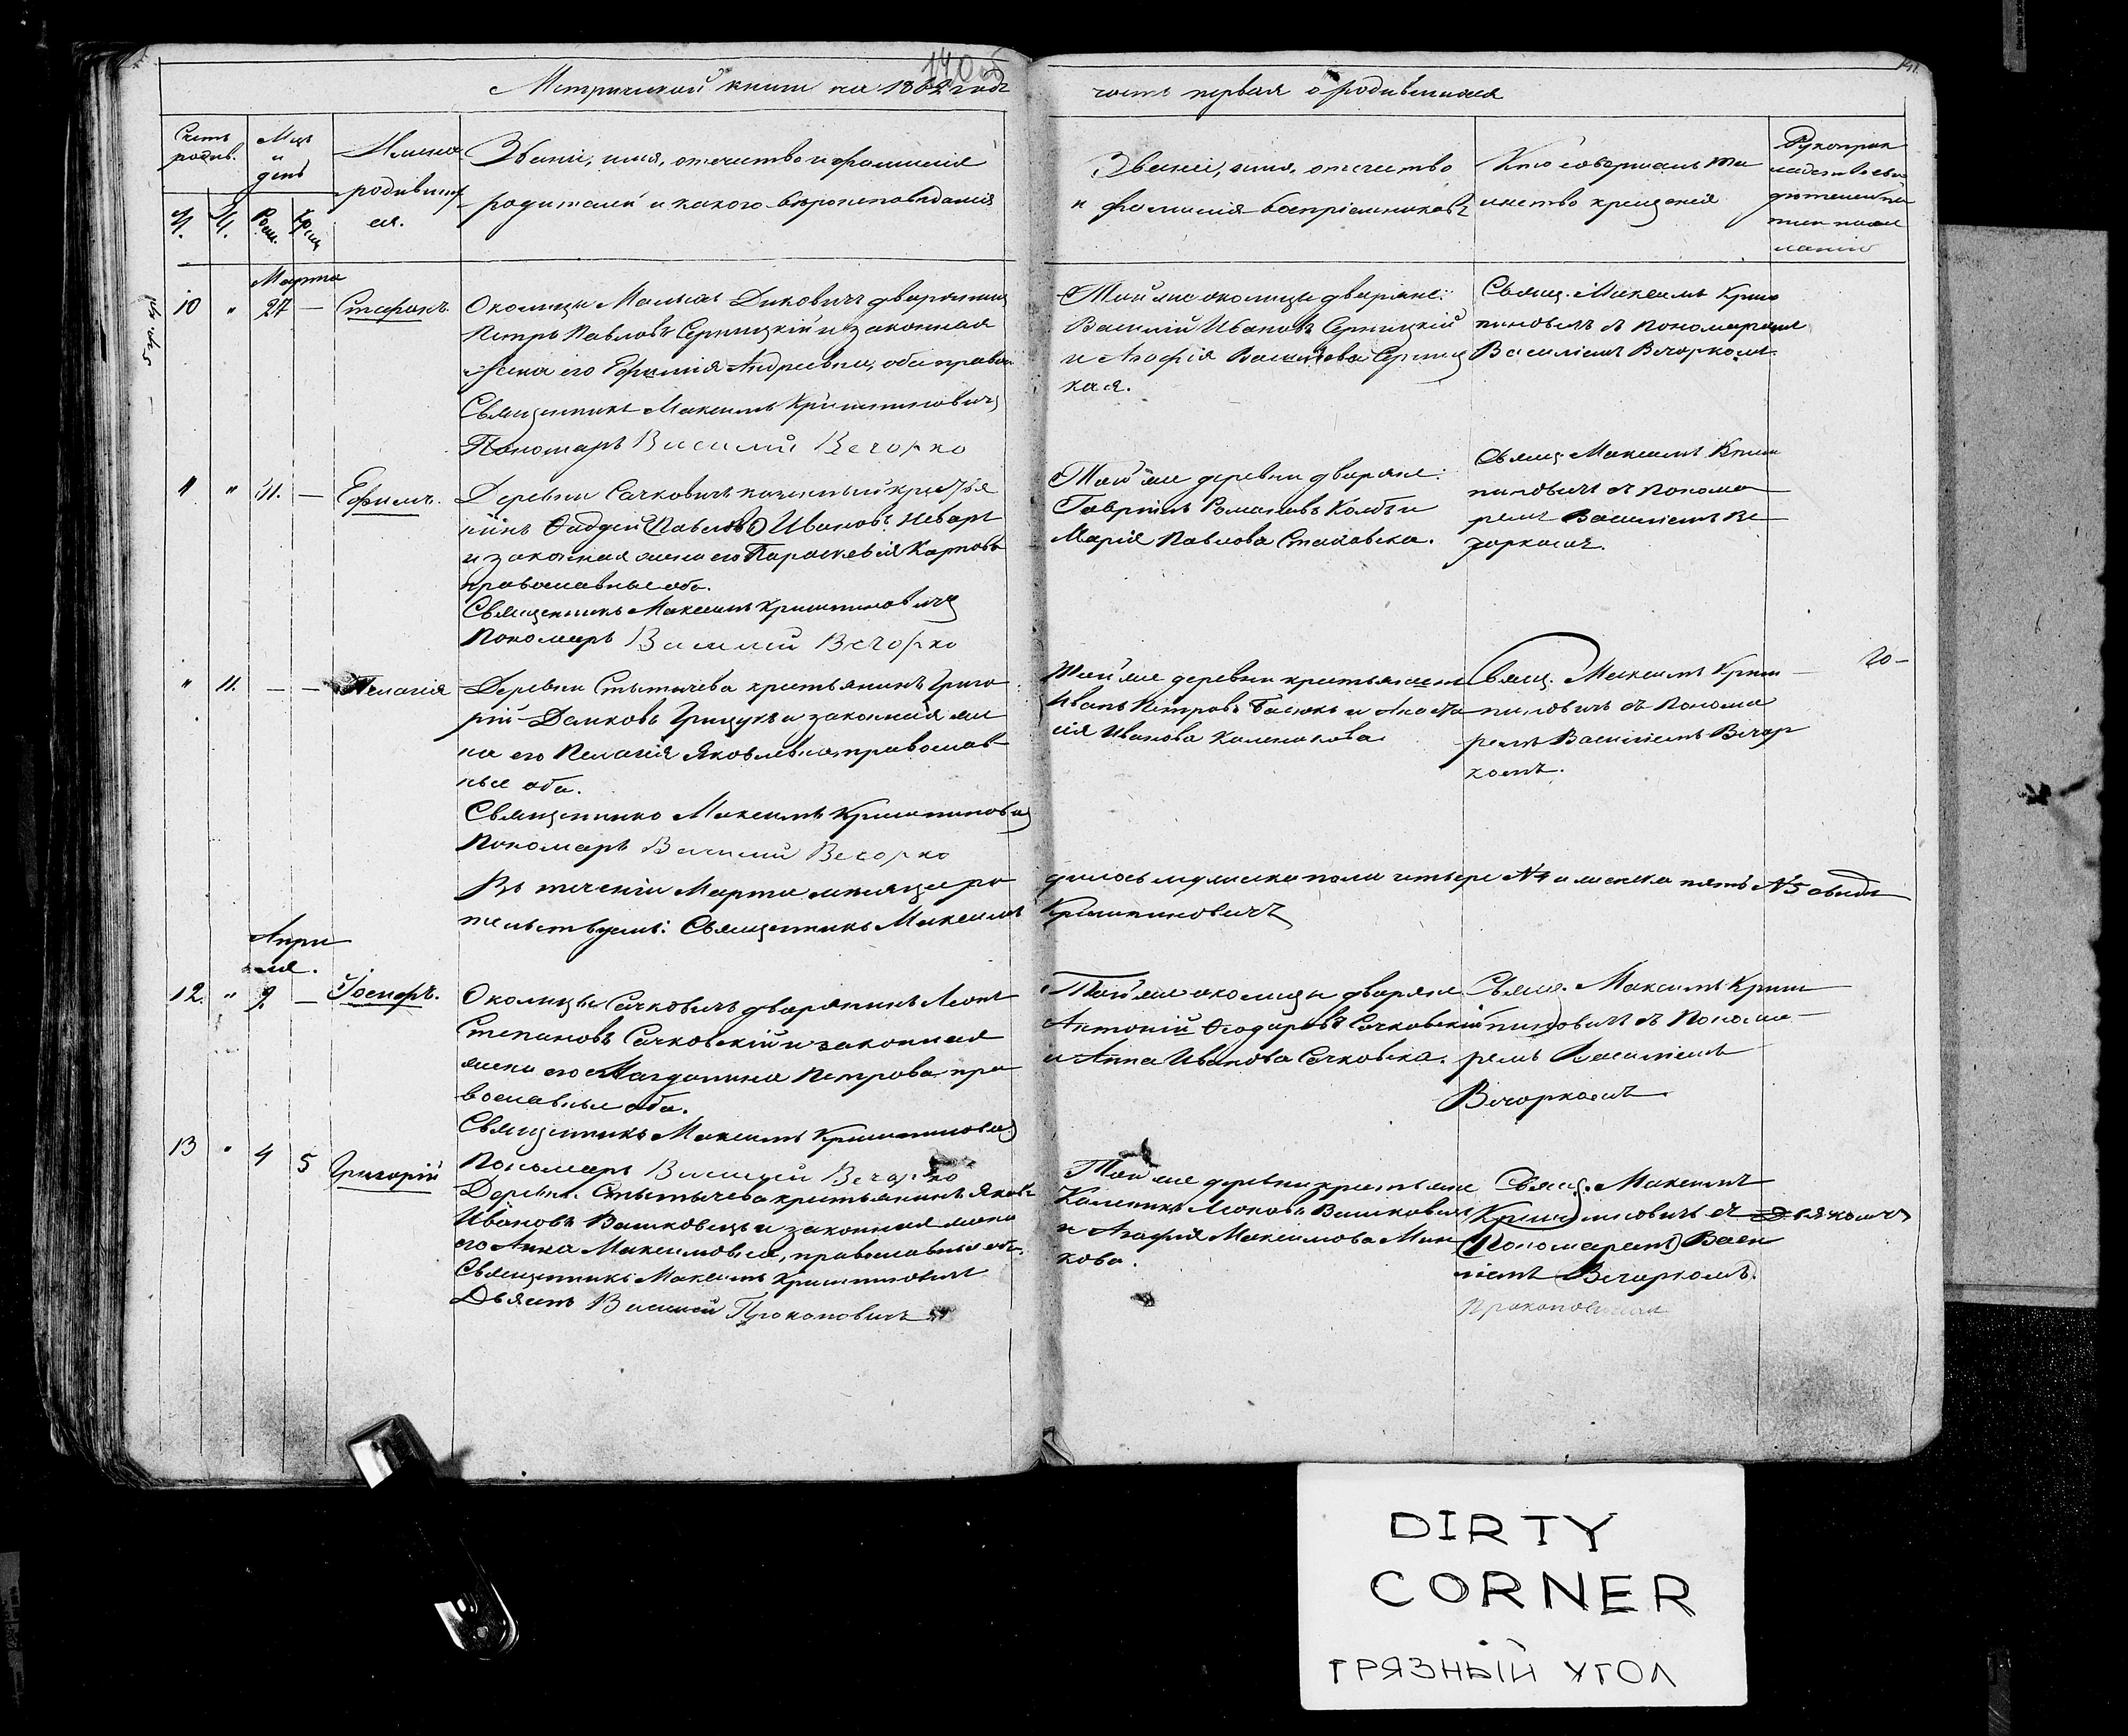 140об
Метрической книги на 1862 годъ
часть первая о родившихся
141.
Счетъ родив.
Мцъ и день
Имена родившихся.
Званіе, имя, отечество и фамилія
родителей и какого вѣроисповѣданія
Званіе, имя, отечество
и фамилія воспріемниковъ
Кто совершалъ та
инство крещенія
Рукоприк
ладство сви
дѣтелей
М. Ж. Рож. Крещ.
Марта
10 " 27 — Стефанъ.
Околицы Малыхъ Диковичъ дворянинъ
Петръ Павловъ Серницкій и законная
жена его Евфимія Андреевна, оба правос.
Священникъ Максимъ Криштиновичъ
Пономарь Василий Вечорко
Той же околицы дворяне:
Василій Ивановъ Серницкій
и Агафія Васильева Серниц
кая.
Свящ. Максимъ Криш
тиновичъ съ пономаремъ
Василіемъ Вечоркомъ.
11 " 31. — Ефимъ.
Деревни Сачковичъ казенный крестья
нинъ Фаддей (Павловъ) Ивановъ
и законная жена его Параскевія Карпова
православные оба.
Священникъ Максимъ Криштиновичъ
Пономарь Василий Вечорко
Той же деревни дворяне:
Гавріилъ Романовъ Колбъ и
Марія Павлова
Свящ. Максимъ Криш
тиновичъ съ понома
ремъ Василіемъ Ве
чоркомъ.
" 11. — — Пелагія
Деревни Стытычева крестьянинъ Григо
рій Грицукъ и законная же
на его Пелагія Яковлевна, православ
ные оба.
Священникъ Максимъ Криштиновичъ
Пономарь Василий Вечорко
Той же деревни крестьяне
Иванъ Петровъ Басюкъ и Анаста
сія Иванова
Свящ. Максимъ Криш
тиновичъ съ понома
ремъ Василіемъ Вечор
комъ.
20 —
Въ теченіи Марта месяца ро
дилось мужеска пола четыре №4 а женска пять №5 свидѣ
тельствуемъ: Священникъ Максимъ
Криштиновичъ
Апре
ля.
12. " 2. — Іосифъ.
Околицы Сачковичъ дворянинъ Леонъ
Степановъ Сачковскій и законная
жена его Магдалина Петрова, пра
вославные оба.
Священникъ Максимъ Криштиновичъ
Пономарь Василий Вечорко
Той же околицы дворяне
Антоній Феодоровъ Сачковскій
и Анна Иванова Сачковска.
Свящ. Максимъ Криш
тиновичъ съ понома
ремъ Василіемъ
Вечоркомъ.
13 " 4 5 Григорій
Деревни Стытычева крестьянинъ Яковъ
Ивановъ Вашковецъ и законная жена
его Анна Максимовна, православные оба.
Священникъ Максимъ Криштиновичъ
Дьякъ Василий Прокоповичъ
Той же деревни крестьяне
Вашковецъ
и Агафія Максимова Мин
кова.
Свящ. Максимъ
Криштиновичъ съ Дьякомъ
(Пономаремъ) Васи
ліемъ Вечоркомъ.
Прокоповичемъ
DIRTY
CORNER
ГРЯЗНЫЙ УГОЛ